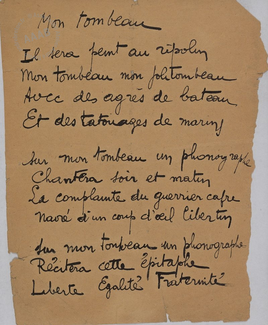 Mon tombeau
Il sera peint au ripolin
Mon tombeau mon joli tombeau
Avec des agrès de bateau
Et des tatouages de marins
Sur mon tombeau un phonographe
Chantera soir et matin
La complainte du guerrier cafre
Navré d'un coup d'œil libertin
Sur mon tombeau un phonographe
Récitera cette épitaphe
Liberté Égalité Fraternité